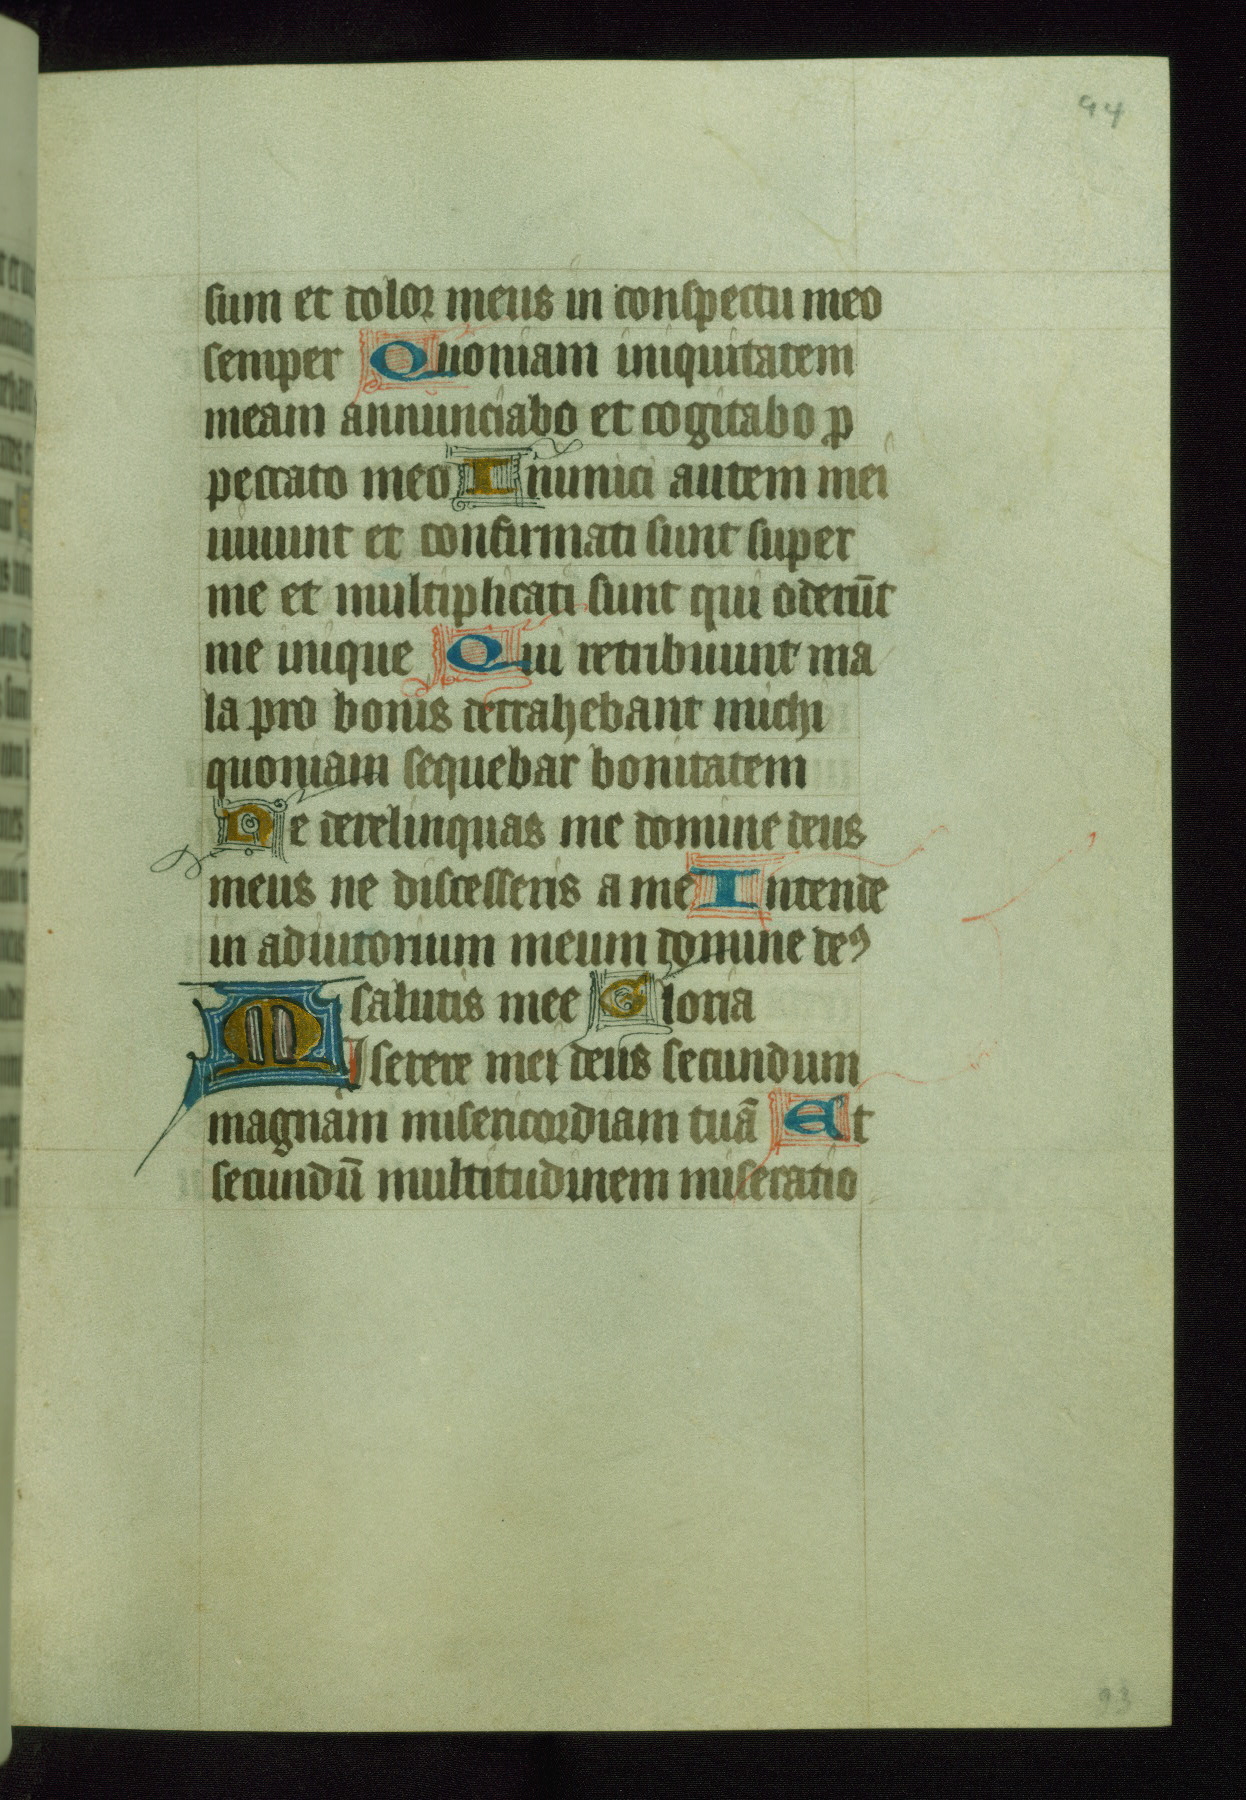 94
sum et dolor meus in conspectu meo
semper Quoniam iniquitatem
meam annunciabo et cogitabo p
peccato meo Inimici autem mei
uiuunt et confirmati sunt super
me et multiplicati sunt qui oderūt
me inique Qui retribuunt ma
la pro bonis detrahebant michi
quoniam sequebar bonitatem
Ne derelinquas me domine deus
meus ne discesseris a me Intende
in adiutorium meum domine deꝰ
salutis mee Gloria
MIserere mei deus secundum
magnam misericordiam tuā Et
secundū multitudinem miseratio
93